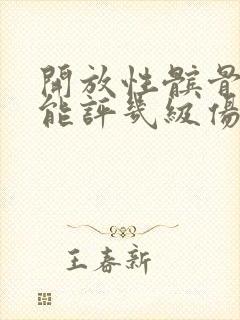 開放性髌骨
能評幾級傷
王春新